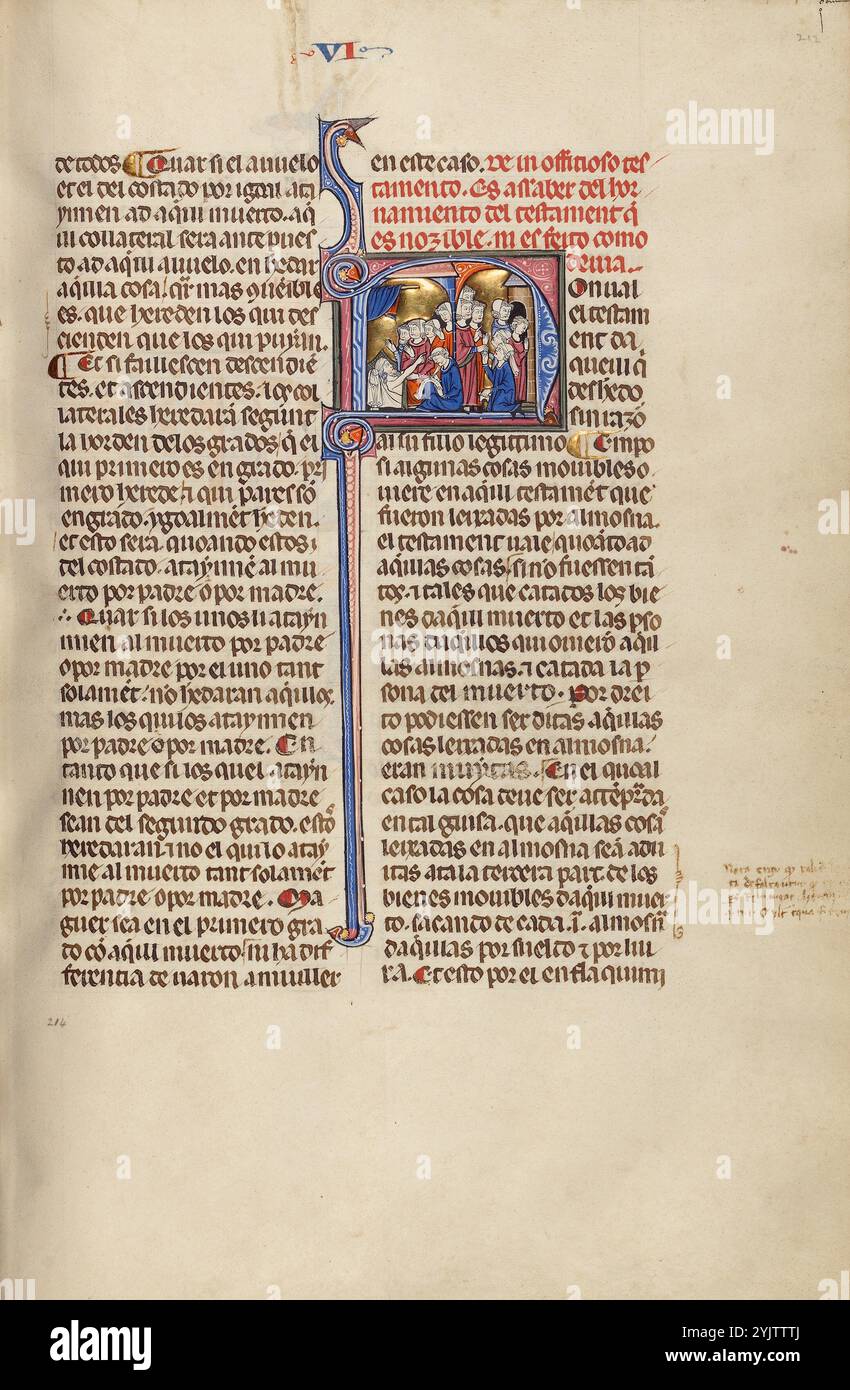 VI
212
de todos Quar si el auuelo
et el del costado por igoal ata
ynnen ad aq̃l muerto. aq̃l
collateral sera ante pues
to ad aq̃l auuelo. en hedar
aq̃lla cosa. q̃r mas conueible
es. que hereden los qui des
cienden que los qui puyan.
Et si faillescen descendiẽ
tes. et ascendientes. los col
laterales heredarã segunt
la orden de los grados q̃ el
qui primero es en grado. pri
mero herede τ qui pares sõ
en grado. ygoalmẽt heden.
et esto sera. quoando estos
del costado. ataynnẽ al mu
erto por padre o por madre.
Quar si los unos li atayn
nen al muerto por padre
o por madre por el uno tant
solamẽt. no hedaran aq̃llos.
mas los qui los ataynnen
por padre o por madre. En
tanto que si los quel atayn
nen por padre et por madre
sean del segundo grado. estos
heredaran τ no el qui lo atay
nne al muerto tant solamẽt
por padre o por madre. Ma
guer sea en el primero gra
do cõ aquel muerto. ni ha dif
ferencia de uaron a muller
214
en este caso. De in officioso tes
tamento. Es assaber del hor
namiento del testament q̃
es nozible. ni es feito como
deuia.
Onual
el testam
ent da
quell q̃
deshedo
sin razõ
al su fillo legittimo Empo
si algunas cosas mouibles o
uiere en aq̃l testamẽt que
fueron lexadas por almosna.
el testament uale quoãto ad
aq̃llas cosas si no fuessen tã
tos. τ tales que catados los bie
nes daq̃l muerto et las pso
nas daq̃llos qui ouierõ aq̃l
las almosnas. τ catada la p
sona del muerto. Por drei
to podiessen ser ditas aq̃llas
cosas lexadas en almosna.
eran muytas. En el quoal
caso la cosa deue ser attẽprada
en tal guisa. que aq̃llas cosas
lexadas en almosna seã adu
itas ata la tercera part de los
bienes mouibles daq̃l muer
to. sacando de cada .i. almosna
daq̃llas por suelto τ por liu
ra. Et esto por el enflaquimi
alamy
Image ID: 2YJTTTJ
www.alamy.com